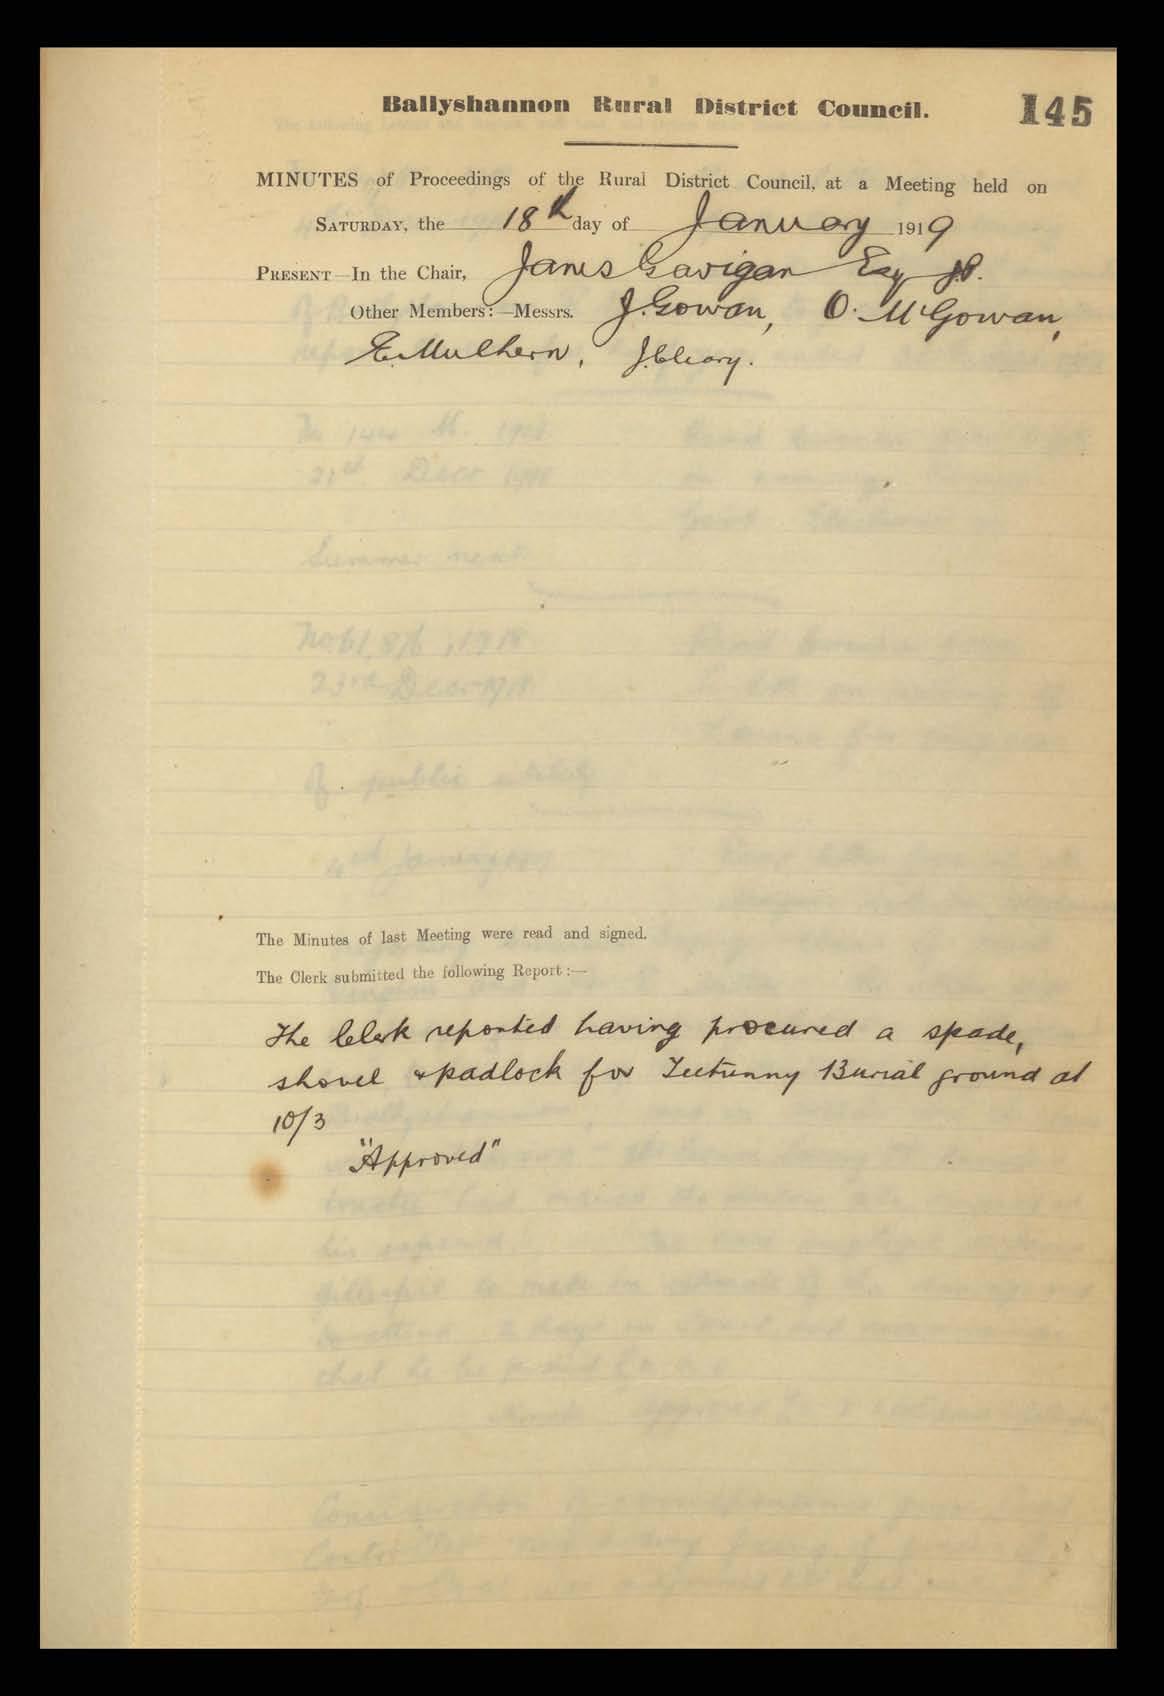 Ballyshannon Rural District Council.
145
MINUTES of Proceedings of the Rural District Council, at a Meeting held on
SATURDAY, the 18th day of January 1919
PRESENT—In the Chair, James Gavigan Esq J.P.
Other Members:—Messrs. J. Gowan, O. McGowan,
E. Mulhern, J. Cleary.
The Minutes of last Meeting were read and signed.
The Clerk submitted the following Report:—
The Clerk reported having procured a spade,
shovel & padlock for Tectunny Burial ground at
10/3
"Approved"